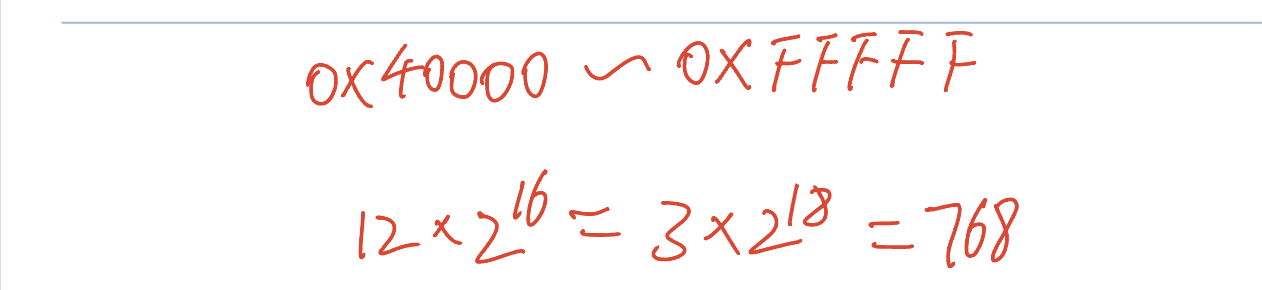 0x40000 ~ 0xFFFFF
12 × 2^16 = 3 × 2^18 = 768